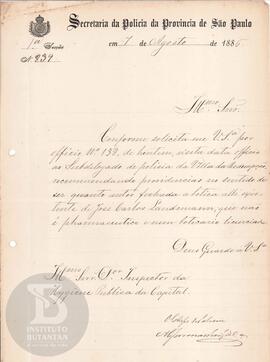 Secretaria da Policia da Provincia de São Paulo
1ª Secção
em 7 de Agosto de 1885
Nº 839
Illmo Snr.
Conforme solicita me V. Sª por
officio Nº 139, de hontem, nesta data officio
ao Subdelegado de policia da Villa da Redempção,
recommendando providencias no sentido de
ser quanto antes fechada a botica alli exis-
tente de José Carlos Landsmann, que não
é pharmaceutico e nem boticario licenciado.
Deus Guarde a V. Sª
Illmo Snr. Dor Inspector da
Hygiene Publica da Capital.
O Chefe de Policia
INSTITUTO
BUTANTAN